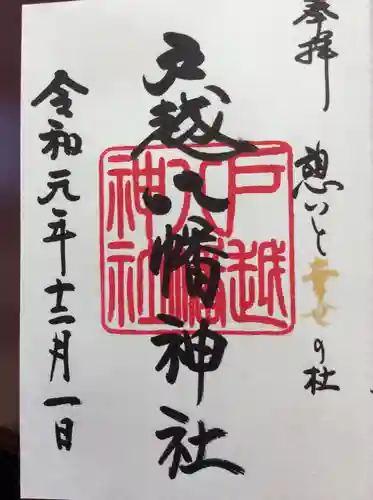 奉拝
憩いと幸せの杜
戸越八幡神社
戸越
八幡
神社
令和元年十二月一日